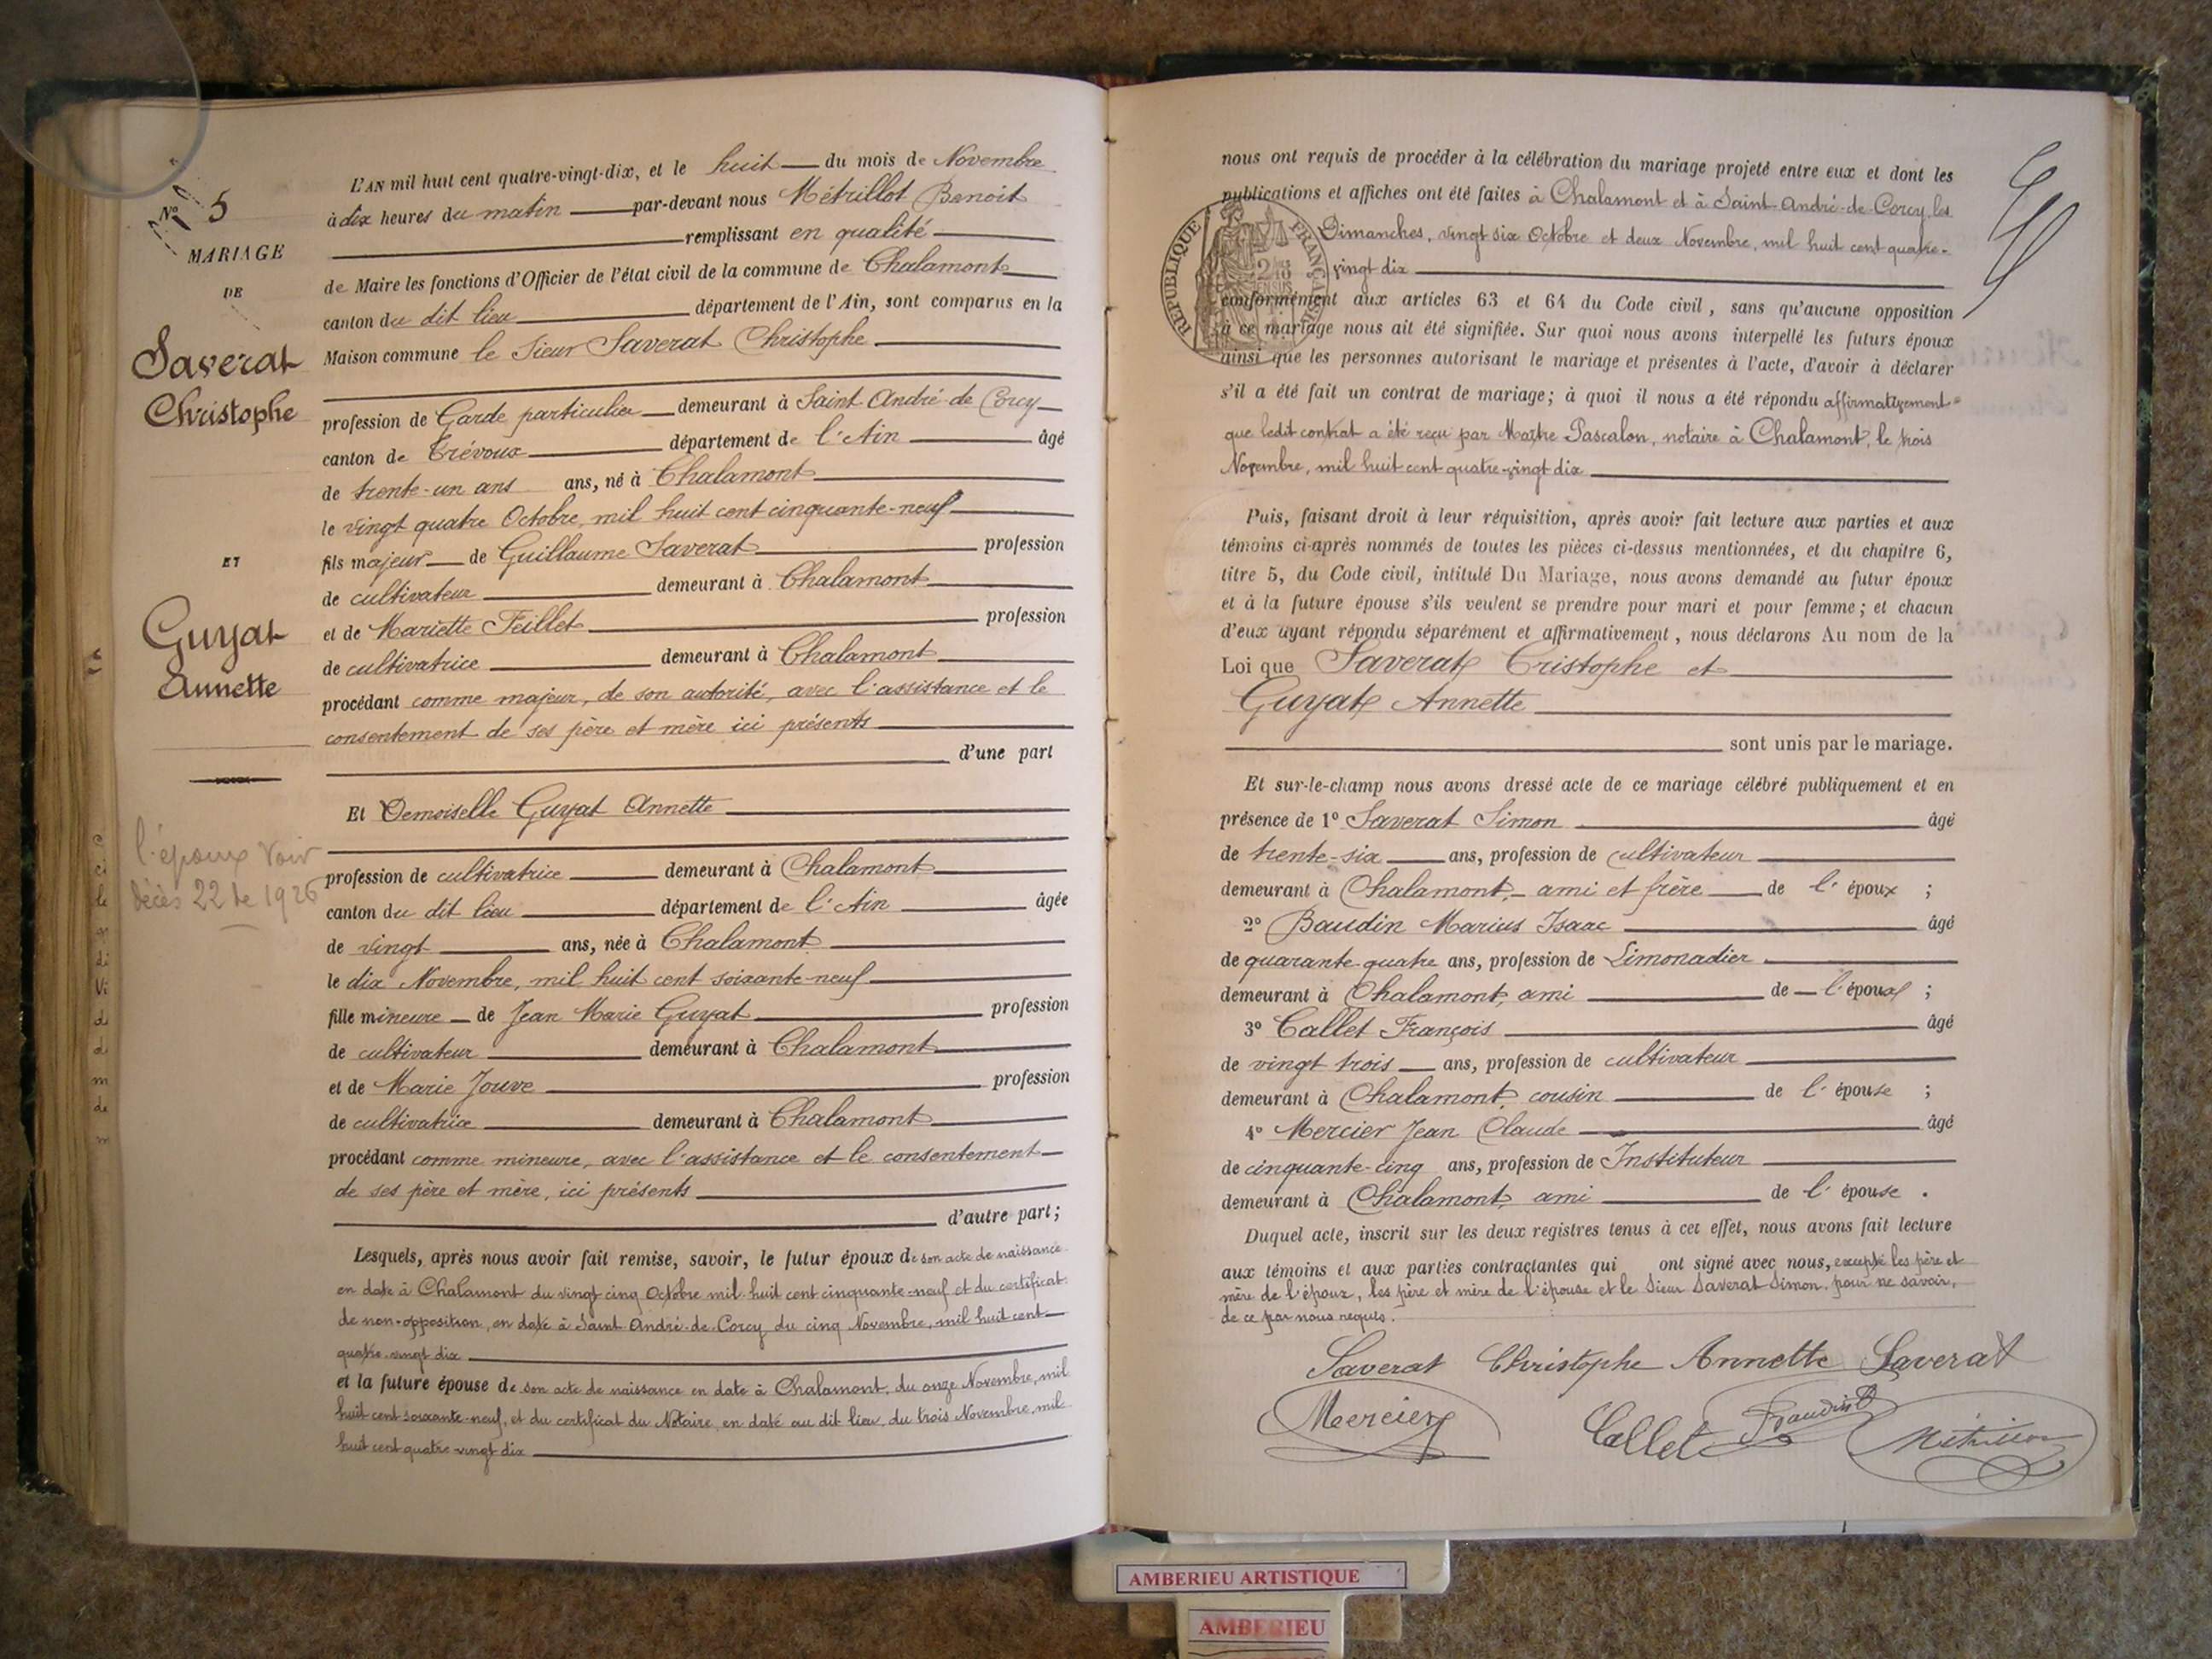 N° 5
MARIAGE
DE
Saverat
Christophe
ET
Guyat
Annette
l'époux voir
décès 22 de 1926
L'AN mil huit cent quatre-vingt-dix, et le huit du mois de Novembre
à dix heures du matin par-devant nous Métrillot Benoit
remplissant en qualité
de Maire les fonctions d'Officier de l'état civil de la commune de Chalamont
canton du dit lieu département de l'Ain, sont comparus en la
Maison commune le Sieur Saverat Christophe
profession de Garde particulier demeurant à Saint André-de-Corcy
canton de Trévoux département de l'Ain âgé
de trente-un ans ans, né à Chalamont
le vingt quatre Octobre, mil huit cent cinquante-neuf
fils majeur de Guillaume Saverat profession
de cultivateur demeurant à Chalamont
et de Mariette Feillet profession
de cultivatrice demeurant à Chalamont
procédant comme majeur, de son autorité, avec l'assistance et le
consentement de ses père et mère ici présents
d'une part
Et Demoiselle Guyat Annette
profession de cultivatrice demeurant à Chalamont
canton du dit lieu département de l'Ain âgée
de vingt ans, née à Chalamont
le dix Novembre, mil huit cent soixante-neuf
fille mineure de Jean Marie Guyat profession
de cultivateur demeurant à Chalamont
et de Marie Jouve profession
de cultivatrice demeurant à Chalamont
procédant comme mineure, avec l'assistance et le consentement
de ses père et mère, ici présents
d'autre part;
Lesquels, après nous avoir fait remise, savoir, le futur époux de son acte de naissance
en date à Chalamont du vingt cinq Octobre mil huit cent cinquante-neuf et du certificat
de non-opposition, en date à Saint André-de-Corcy du cinq Novembre, mil huit cent
quatre-vingt dix
et la future épouse de son acte de naissance en date à Chalamont, du onze Novembre, mil
huit cent soixante-neuf, et du certificat du Notaire, en date au dit lieu, du trois Novembre, mil
huit cent quatre-vingt dix
nous ont requis de procéder à la célébration du mariage projeté entre eux et dont les
publications et affiches ont été faites à Chalamont et à Saint-André-de-Corcy, les
Dimanches, vingt six Octobre et deux Novembre, mil huit cent quatre-
vingt dix
RÉPUBLIQUE FRANÇAISE
conformément aux articles 63 et 64 du Code civil, sans qu'aucune opposition
à ce mariage nous ait été signifiée. Sur quoi nous avons interpellé les futurs époux
ainsi que les personnes autorisant le mariage et présentes à l'acte, d'avoir à déclarer
s'il a été fait un contrat de mariage; à quoi il nous a été répondu affirmativement
que ledit contrat a été reçu par Maître Pascalon, notaire à Chalamont, le trois
Novembre, mil huit cent quatre-vingt dix
Puis, faisant droit à leur réquisition, après avoir fait lecture aux parties et aux
témoins ci-après nommés de toutes les pièces ci-dessus mentionnées, et du chapitre 6,
titre 5, du Code civil, intitulé Du Mariage, nous avons demandé au futur époux
et à la future épouse s'ils veulent se prendre pour mari et pour femme; et chacun
d'eux ayant répondu séparément et affirmativement, nous déclarons Au nom de la
Loi que Saverat Cristophe et
Guyat Annette
sont unis par le mariage.
Et sur-le-champ nous avons dressé acte de ce mariage célébré publiquement et en
présence de 1° Saverat Simon âgé
de trente-six ans, profession de cultivateur
demeurant à Chalamont, ami et frère de l'époux ;
2° Baudin Marius Isaac âgé
de quarante-quatre ans, profession de Limonadier
demeurant à Chalamont, ami de l'époux ;
3° Callet François âgé
de vingt trois ans, profession de cultivateur
demeurant à Chalamont, cousin de l'épouse ;
4° Mercier Jean Claude âgé
de cinquante-cinq ans, profession de Instituteur
demeurant à Chalamont, ami de l'épouse .
Duquel acte, inscrit sur les deux registres tenus à cet effet, nous avons fait lecture
aux témoins et aux parties contractantes qui ont signé avec nous, excepté les père et
mère de l'époux, les père et mère de l'épouse et le Sieur Saverat Simon, pour ne savoir,
de ce par nous requis.
Saverat Christophe Annette Saverat
Mercier Callet Baudin Métrillot
AMBERIEU ARTISTIQUE
AMBERIEU